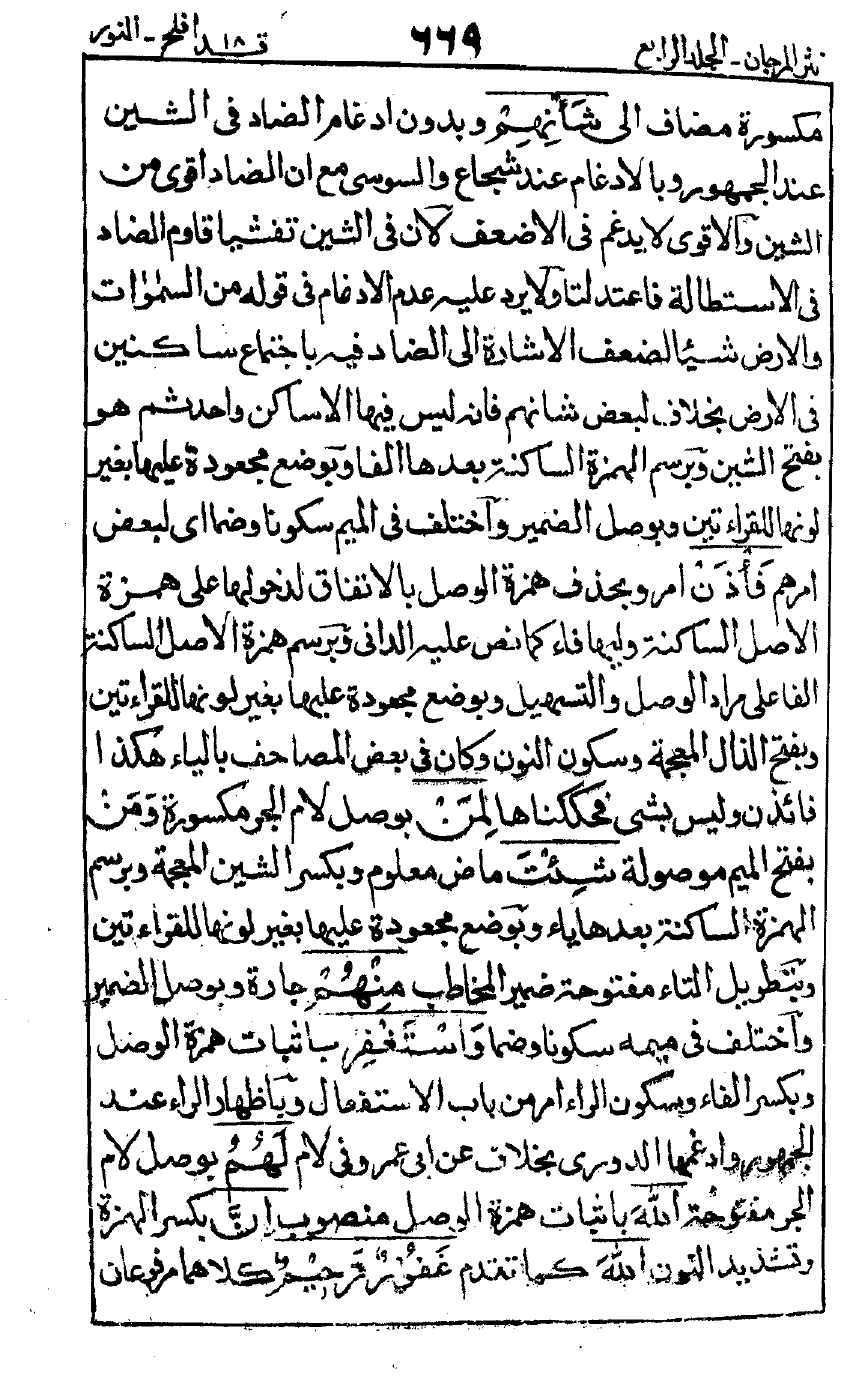 نثر المرجان - المجلد الرابع ٦٦٩ قد افلح ١٨ - النور
مكسورة مضاف الى شَأْنِهِمْ وبدون ادغام الضاد فى الشين
عند الجمهور وبالادغام عند شجاع والسوسى مع ان الضاد اقوى من
الشين والاقوى لا يدغم فى الاضعف لان فى الشين تفشيا قاوم الضاد
فى الاستطالة فاعتدلتا ولا يرد عليه عدم الادغام فى قوله من السمٰوٰت
والارض شيئا لضعف الاشارة الى الضاد فيه باجتماع ساكنين
فى الارض بخلاف لبعض شانهم فانه ليس فيها الا ساكن واحد ثم هو
بفتح الشين وبرسم الهمزة الساكنة بعدها الفا وبوضع مجعودة عليها بغير
لونها للقراءتين وبوصل الضمير واختلف فى الميم سكونا وضما اى لبعض
امرهم فَأْذَنْ امر وبحذف همزة الوصل بالاتفاق لدخولها على همزة
الاصل الساكنة وليها فاء كما نص عليه الدانى وبرسم همزة الاصل الساكنة
الفا على مراد الوصل والتسهيل وبوضع مجعودة عليها بغير لونها للقراءتين
وبفتح الذال المعجمة وسكون النون وكان فى بعض المصاحف بالياء هكذا
فائذن وليس بشى فحككناها لِمَنْ بوصل لام الجر مكسورة وَمَنْ
بفتح الميم موصولة شِئْتَ ماض معلوم وبكسر الشين المعجمة وبرسم
الهمزة الساكنة بعدها ياء وبوضع مجعودة عليها بغير لونها للقراءتين
وبتطويل التاء مفتوحة ضمير المخاطب مِنْهُمْ جارة وبوصل الضمير
واختلف فى ميمه سكونا وضما وَاسْتَغْفِرْ باثبات همزة الوصل
وبكسر الفاء وبسكون الراء امر من باب الاستفعال وباظهار الراء عند
الجمهور وادغمها الدورى بخلاف عن ابى عمرو فى لام لَهُمُ بوصل لام
الجر مفتوحة اللهَ باثبات همزة الوصل منصوب إِنَّ بكسر الهمزة
وتشديد النون اللهَ كما تقدم غَفُوْرٌ رَّحِيْمٌ كلاهما مرفوعان